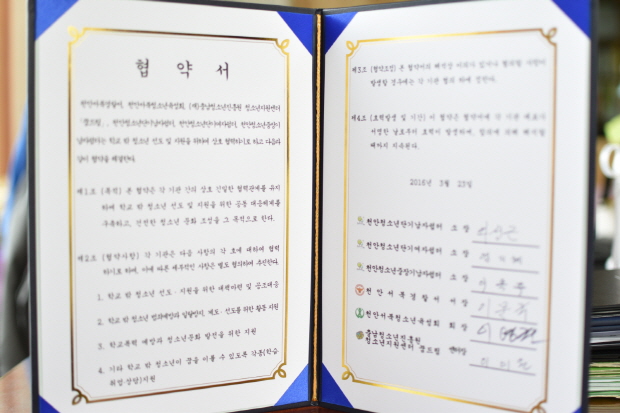 협 약 서
천안서북경찰서, 천안서북청소년육성회, (재)충남청소년진흥원 청소년지원센터
「꿈드림」, 천안청소년단기남자쉼터, 천안청소년단기여자쉼터, 천안청소년중장기
남자쉼터는 학교 밖 청소년 선도 및 지원을 위하여 상호 협력하기로 하고 다음과
같이 협약을 체결한다.
제1조 (목적) 본 협약은 각 기관 간의 상호 긴밀한 협력관계를 유지
하여 학교 밖 청소년 선도 및 지원을 위한 공동 대응체계를
구축하고, 건전한 청소년 문화 조성을 그 목적으로 한다.
제2조 (협약사항) 각 기관은 다음 사항의 각 호에 대하여 협력
하기로 하며, 이에 따른 세부적인 사항은 별도 협의하여 추진한다.
1. 학교 밖 청소년 선도·지원을 위한 대책마련 및 공조대응
2. 학교 밖 청소년 범죄예방과 일탈방지, 계도·선도를 위한 활동 지원
3. 학교폭력 예방과 청소년문화 발전을 위한 지원
4. 기타 학교 밖 청소년이 꿈을 이룰 수 있도록 각종(학습
취업·상담)지원
제3조 (협약조정) 본 협약서의 해석상 이의가 있거나 협의할 사항이
발생할 경우에는 각 기관 협의 하에 정한다.
제4조 (효력발생 및 시간) 이 협약은 협약서에 각 기관 대표가
서명한 날로부터 효력이 발생하며, 합의에 의해 해지될
때까지 지속된다.
2016년 3월 23일
천안청소년단기남자쉼터 소 장
천안청소년단기여자쉼터 소 장
천안청소년중장기남자쉼터 소 장
천 안 서 북 경 찰 서 서 장
천안서북청소년육성회 회 장
충남청소년진흥원
청소년지원센터 꿈드림 센터장